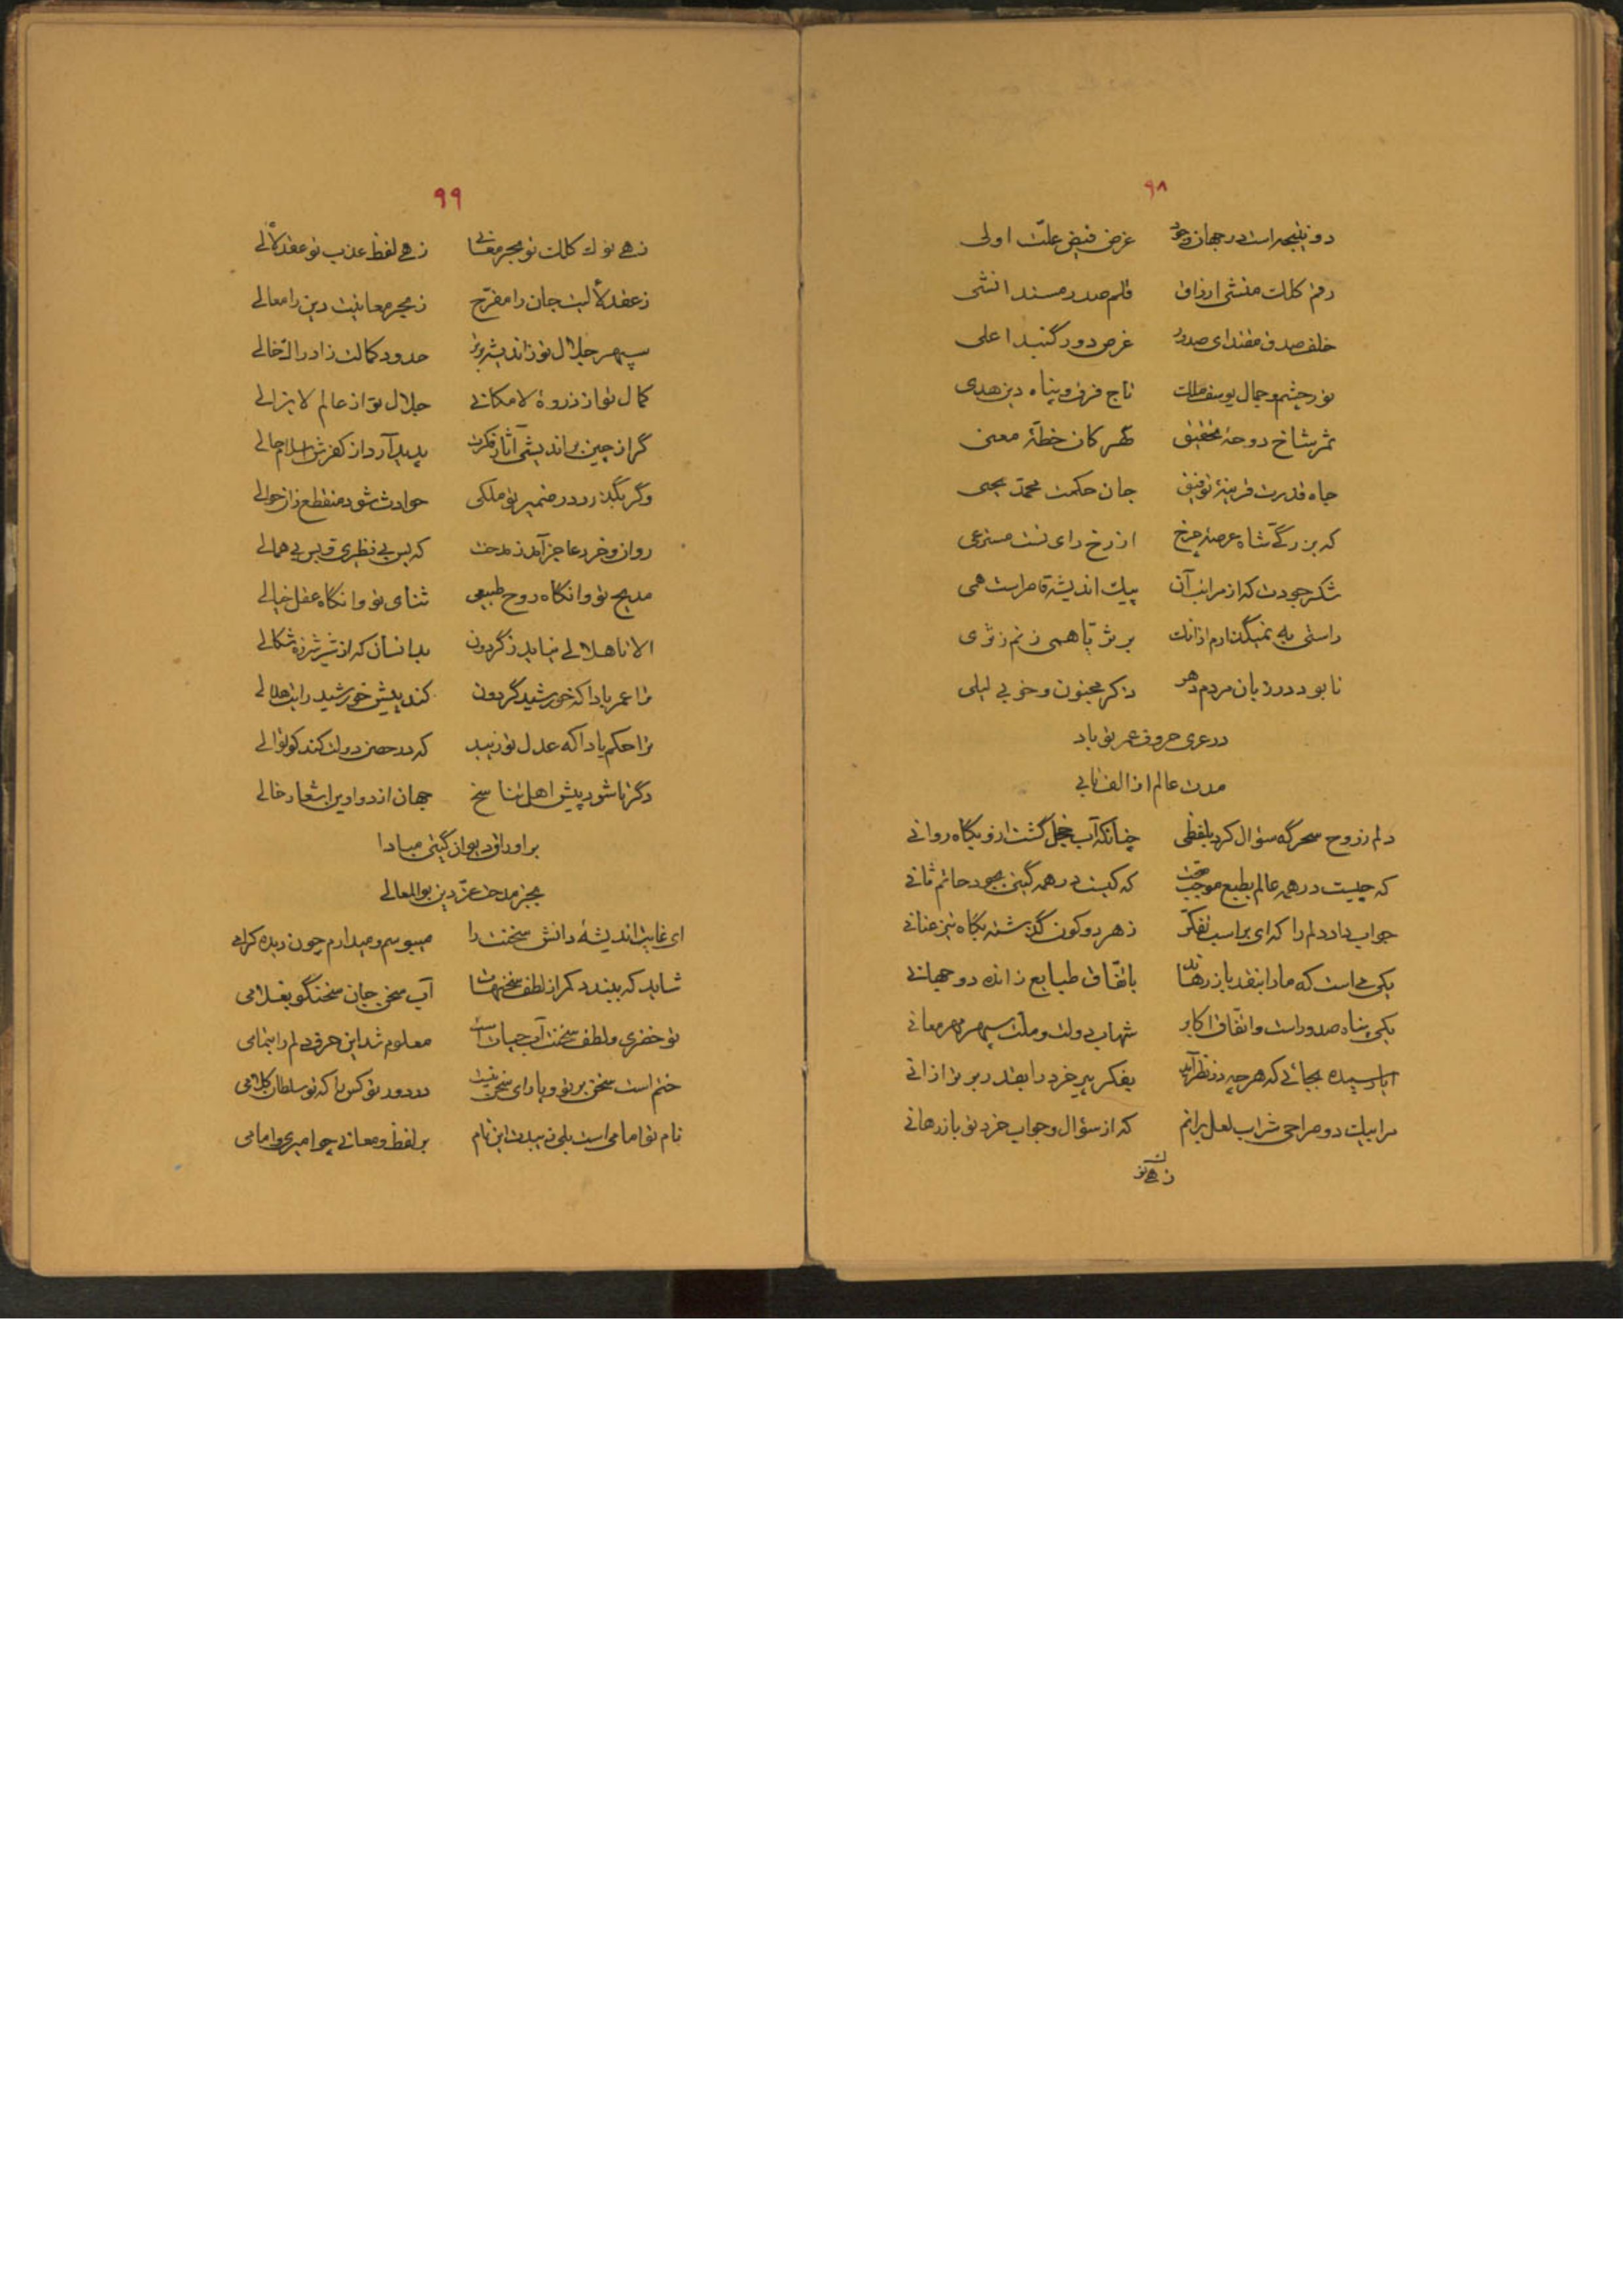 ۹۸
دو نتیجه است در جهان وجود غرض فیض علت اولی
رقم کلکت منشی ارزاق قلم صدر مسند انشی
خلف صدق مقتدای صدور غرض دور گنبد اعلی
نور چشم و جمال یوسف ملک تاج فرق و پناه دین هدی
ثمر شاخ دوحهٔ تحقیق گهر کان خطهٔ معنی
جاه قدرت قرینهٔ توفیق جان حکمت محمد یحیی
که بزرگی شاه عرصهٔ چرخ از رخ رای تست مستدعی
شکر جودت که از مراتب آن پیک اندیشه قاصر است همی
راستی به نمیگذارم از انک بر ثریا همی زنم ز ثری
تا بود در زبان مردم دهر ذکر مجنون و خوبی لیلی
در عری حروف عمر تو باد
مدت عالم از الف تا یی
دلم ز روح سحرگه سؤال کرد بلفظی چنانکه آب خجل گشت ازو بگاه روانی
که چیست در همه عالم بطبع موجب صحت که کیست در همه گیتی بجود حاتم ثانی
جواب داد دلم را که ای براسب تفکر ز هر دو کون گذشته بگاه تیز عنانی
یکی می است که ما را بنقد باز رهاند باتفاق طبایع ز انده دو جهانی
یکی پناه صدور است و اتفاق اکابر شهاب دولت و ملت سپهر مهر معانی
ایا رسیده بجائی که هر چه در نظر آید بفکر پیر خرد را بقدر برتر از انی
مرا بیک دو صراحی شراب لعل برانم که از سؤال و جواب خرد تو باز رهانی
زهی نوک
۹۹
زهی نوک کلک تو بحر معانی زهی لفظ عذب تو عقد لألی
ز عقد لألیت جان را مفرح ز بحر معانیت دین را معالی
سپهر جلال تو ز اندیشه برتر حدود کمالت ز ادراک خالی
کمال تو از ذروهٔ لامکانی جلال تو از عالم لایزالی
گر از چین براندیشی آثار فکرت پدید آرد از کفرش اسلام حالی
وگر بگذرد در ضمیر تو ملکی حوادث شود منقطع زان حوالی
روان و خرد عاجز آمد ز مدحت که بس بی نظیری و بس بی همالی
مدیح تو وانگاه روح طبیعی ثنای تو وانگاه عقل خیالی
الا تا هلالی نیاید ز گردون بدانسان که از شیر شرزه شکالی
ترا عمر بادا که خورشید گردون کند پیش خورشید رایت هلالی
ترا حکم بادا که عدل تو زیبد که در حصن دولت کند کوتوالی
دگر تا شود پیش اهل تناسخ جهان از دواوین اشعار خالی
بر اوراق دیوان گیتی مبادا
بجز مدحت عز دین بوالمعالی
ای غایت اندیشهٔ دانش سخنت را میبوسم و میدارم چون دیده گرامی
شاید که ببندد کمر از لطف سخنهات آب سخن جان سخنگو بغلامی
تو خضری و لطف سخنت آب حیات است معلوم شد این حرف دلم را بتمامی
ختم است سخن بر تو و یارای سخن نیست در دور تو کس را که تو سلطان کلامی
نام تو امامی است بلی زیبدت این نام بر لفظ و معانی چو امیری و امامی